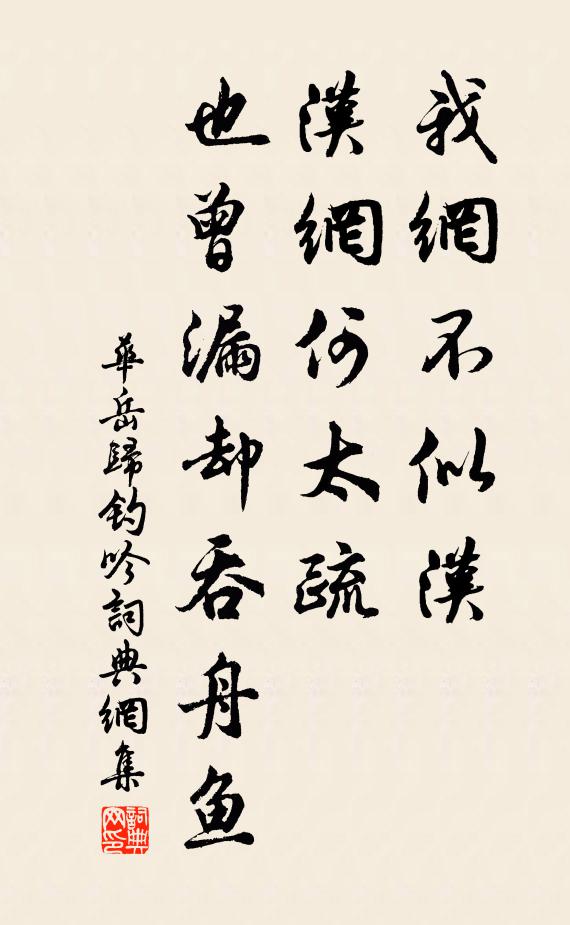 我網不似漢
漢網何太疏
也曾漏却吞舟鱼
華岳歸釣吟詞典網集
詞典网印